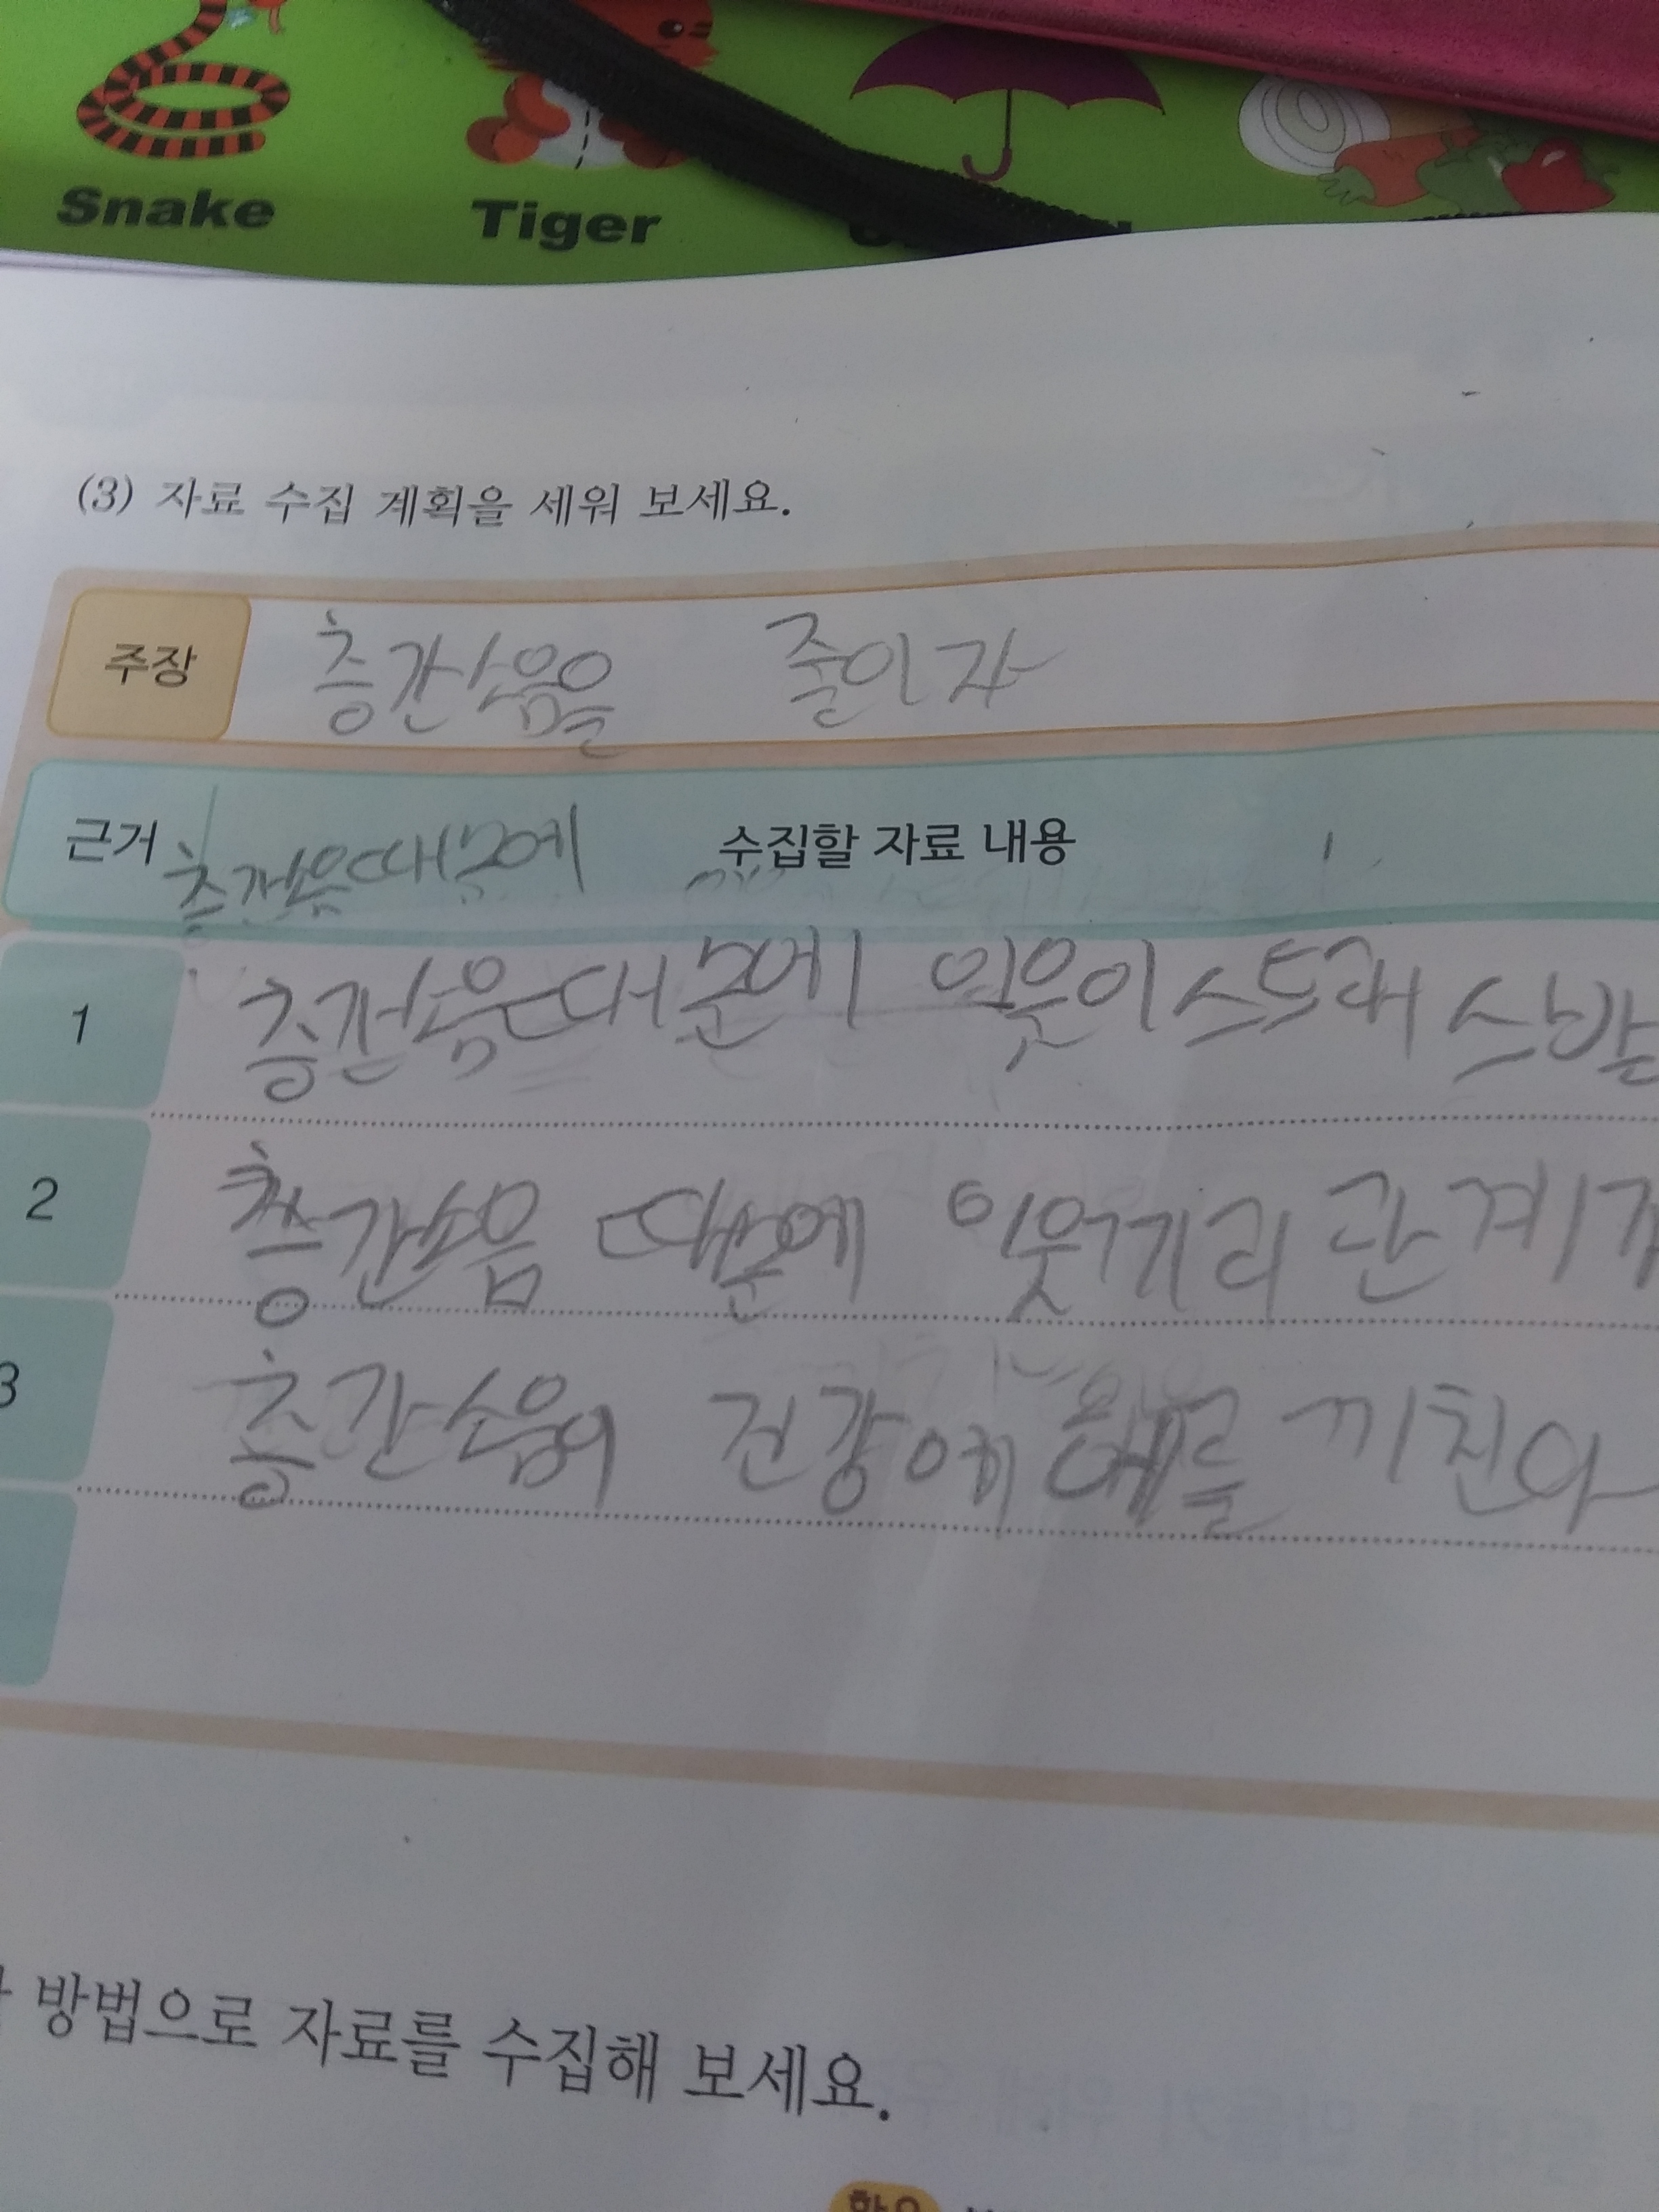 Snake Tiger
(3) 자료 수집 계획을 세워 보세요.
주장 층간소음을 줄이자
근거 층간소음때문에 수집할 자료 내용
1 층간소음때문에 이웃이스트래스발
2 층간소음 때문에 이웃끼리 관계가
3 층간소음이 건강에 해를 끼친다
방법으로 자료를 수집해 보세요.